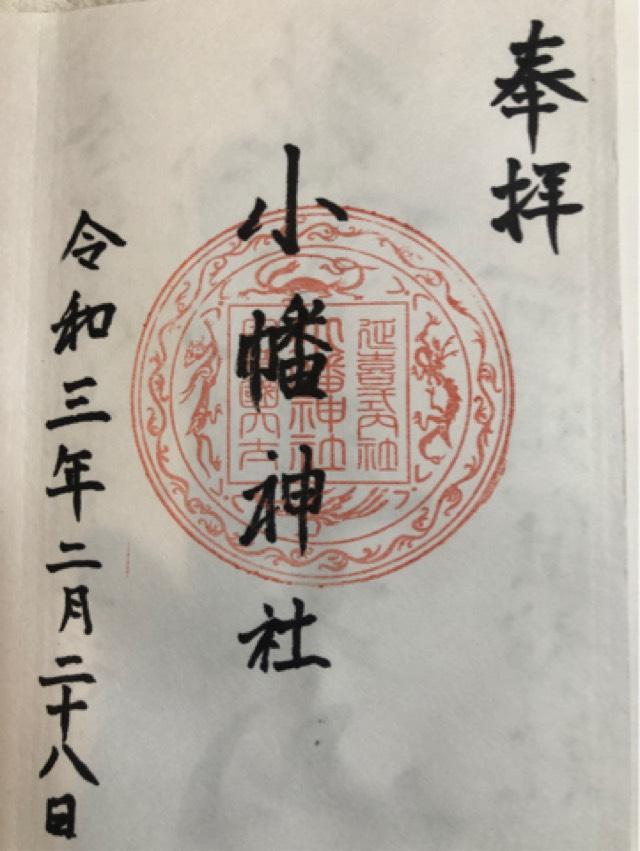 奉拝
小幡神社
延喜式内社
小幡神社
令和三年二月二十八日